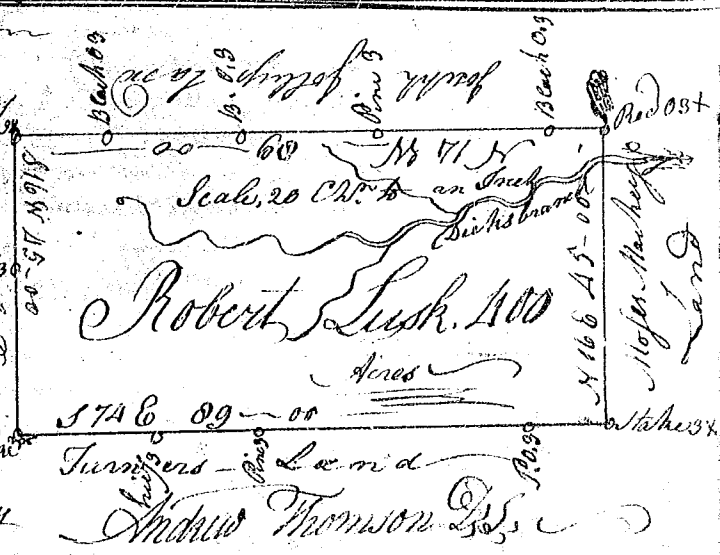 Black 03
B. 0.3
Pine 3
Black 0.3
Red 03+
Joseph Jolleys Land
N 71 W 89 — 00
Scale, 20 Chs. to an Inch
Dicks branch
S 16 W 45-00
Robert Lusk. 400
Acres
N 16 E 45-00
Moses Mackeys
Land
S 74 E 89 — 00
Stake 3X
Turners Land
Pine 3
P.O.3
Andrew Thomson D.S.